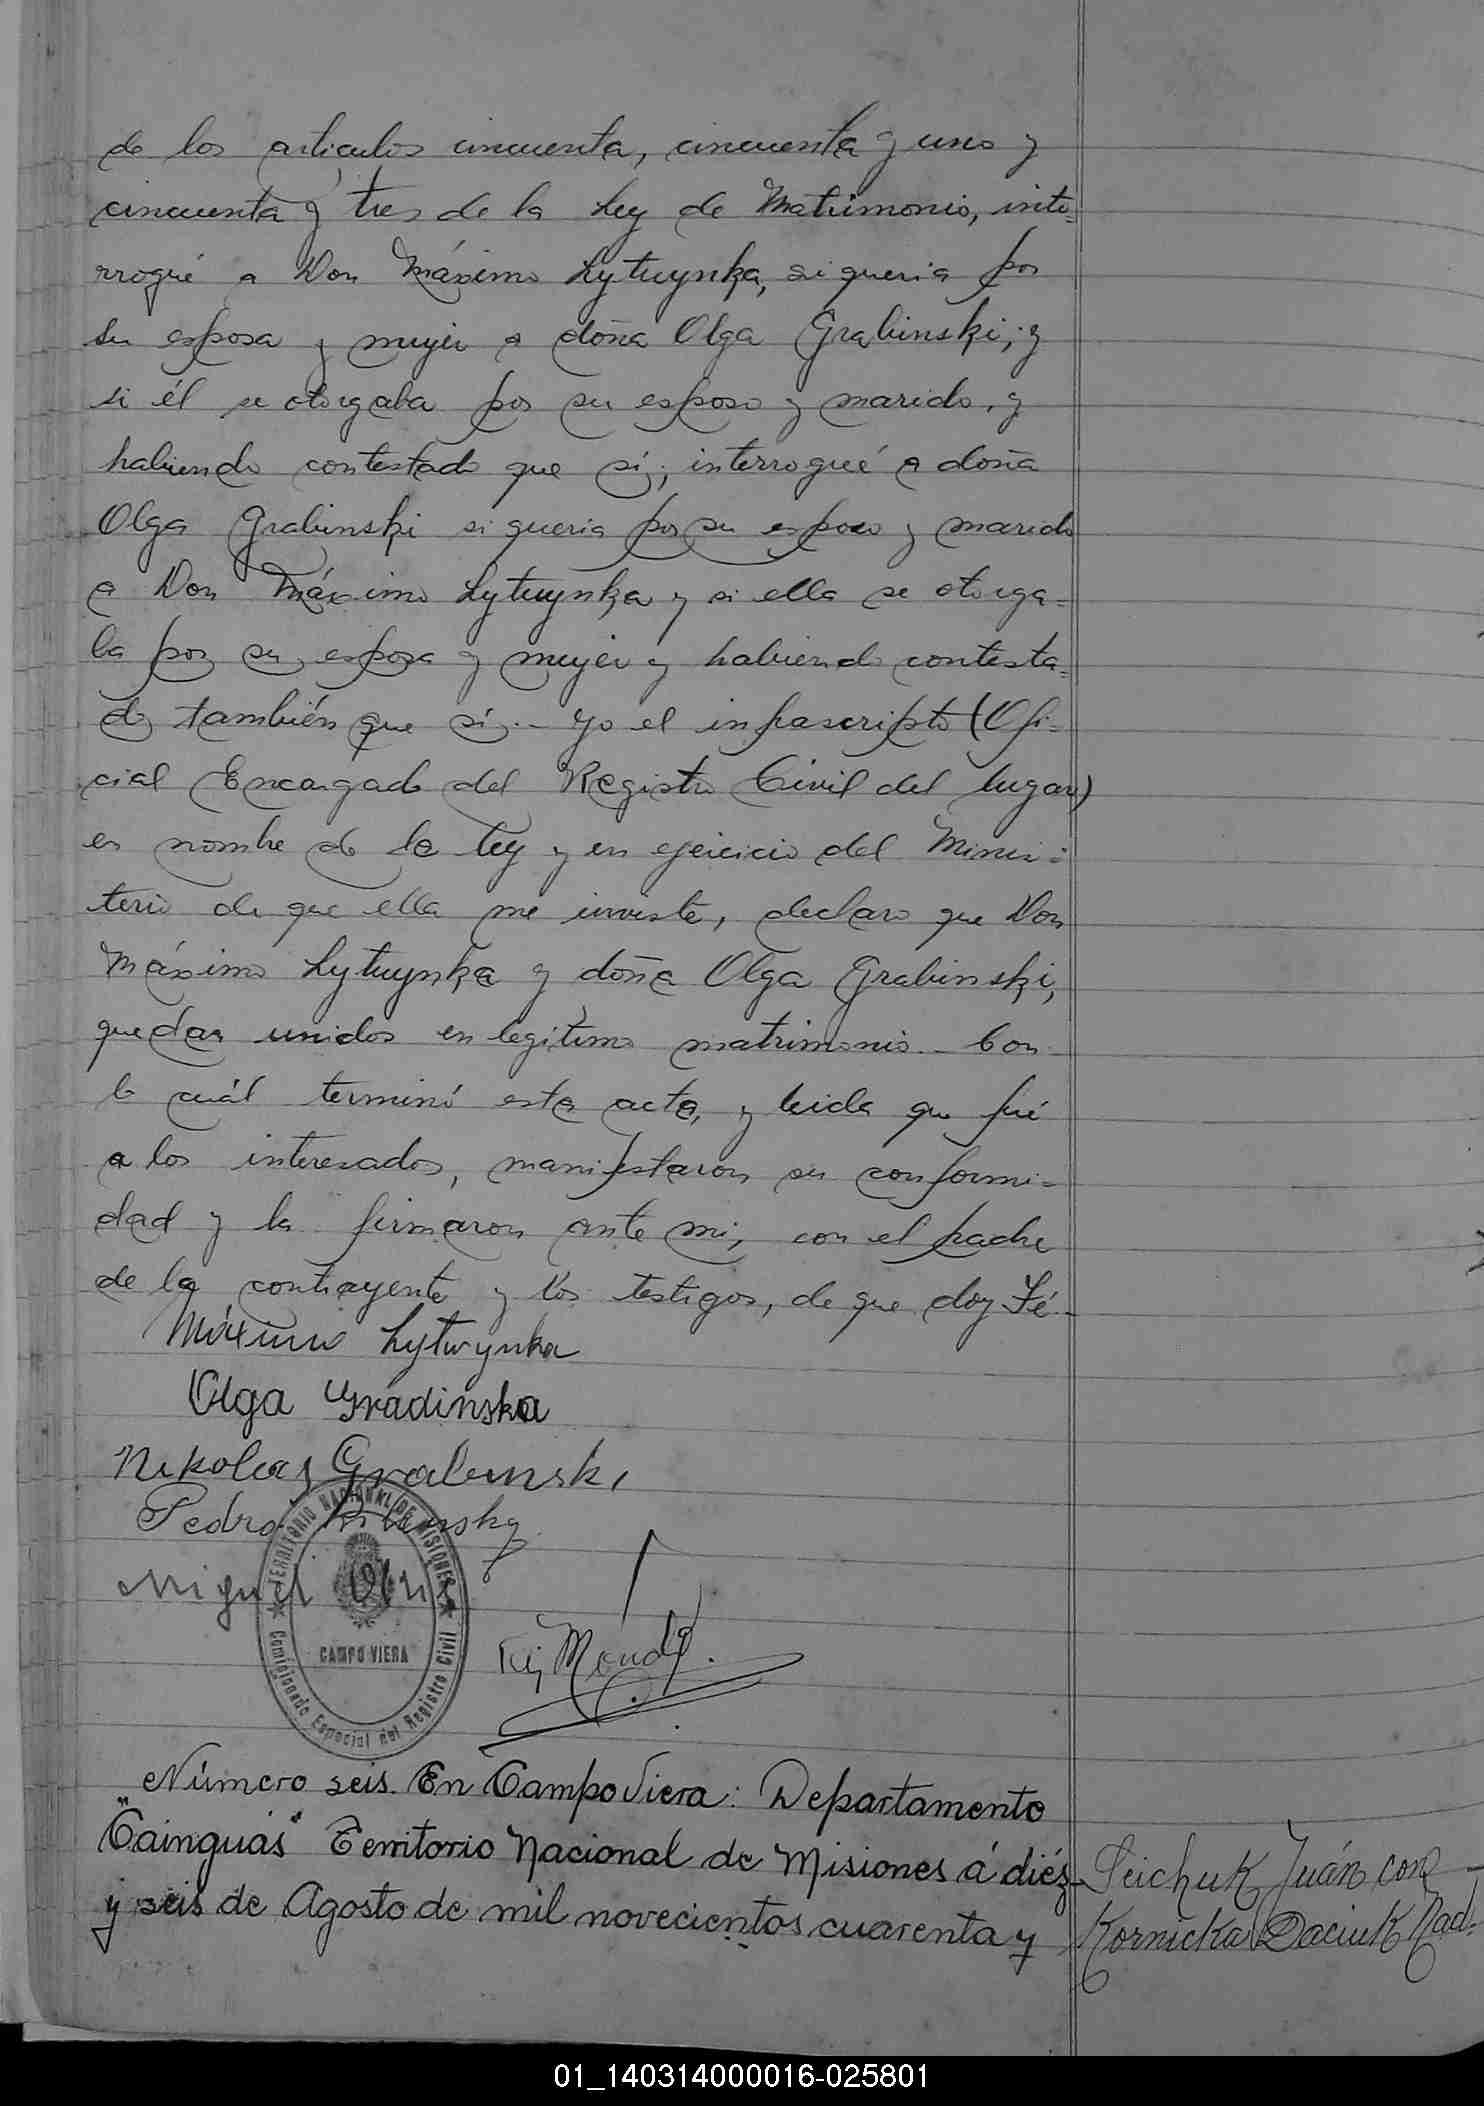 de los articulos cincuenta, cincuenta y uno y
cincuenta y tres de la Ley de Matrimonio, inte=
rrogué a Don Máximo Lytwynka, si queria por
su esposa y mujer a doña Olga Grabinski; y
si él se otorgaba por su esposo y marido, y
habiendo contestado que sí; interrogué a doña
Olga Grabinski si queria por su esposo y marido
a Don Máximo Lytwynka y si ella se otorga=
ba por su esposa y mujer y habiendo contesta=
do también que sí.- Yo el infrascripto (Ofi-
cial Encargado del Registro Civil del lugar)
en nombre de la ley y en ejercicio del Minis=
terio de que ella me inviste, declaro que Don
Máximo Lytwynka y doña Olga Grabinski,
quedan unidos en legítimo matrimonio.- Con
lo cuál terminó esta acta, y leida que fué
a los interesados, manifestaron su conformi=
dad y la firmaron ante mi, con el padre
de la contrayente y los testigos, de que doy Fé.-
Máximo Lytwynka
Olga Gradinska
Nikolas Grabinski
Pedro
Miguel
TERRITORIO NACIONAL DE MISIONES
CAMPO VIERA
Comisionado Especial del Registro Civil
Número seis. En Campo Viera: Departamento
"Cainguás" Territorio Nacional de Misiones á diéz
y seis de Agosto de mil novecientos cuarenta y
Seichuk Juán con
Kornicka Daciuk Nad.
01_140314000016-025801